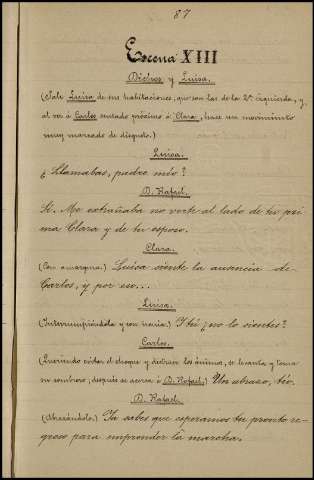 87
Escena XIII
Dichos y Luisa.
(Sale Luisa de sus habitaciones, que son las de la 2ª izquierda, y,
al ver á Carlos sentado próximo á Clara, hace un movimiento
muy marcado de disgusto.)
Luisa.
¿Llamabas, padre mío?
D. Rafael.
Sí. Me extrañaba no verte al lado de tu pri
ma Clara y de tu esposo.
Clara.
(Con amargura.) Luisa siente la ausencia de
Carlos, y por eso...
Luisa.
(Interrumpiéndola y con ironía.) Y tú ¿no lo sientes?
Carlos.
(Queriendo evitar el choque y distraer los ánimos, se levanta y toma
su sombrero; después se acerca á D. Rafael.) Un abrazo, tío.
D. Rafael.
(Abrazándole.) Ya sabes que esperamos tu pronto re
greso para emprender la marcha.